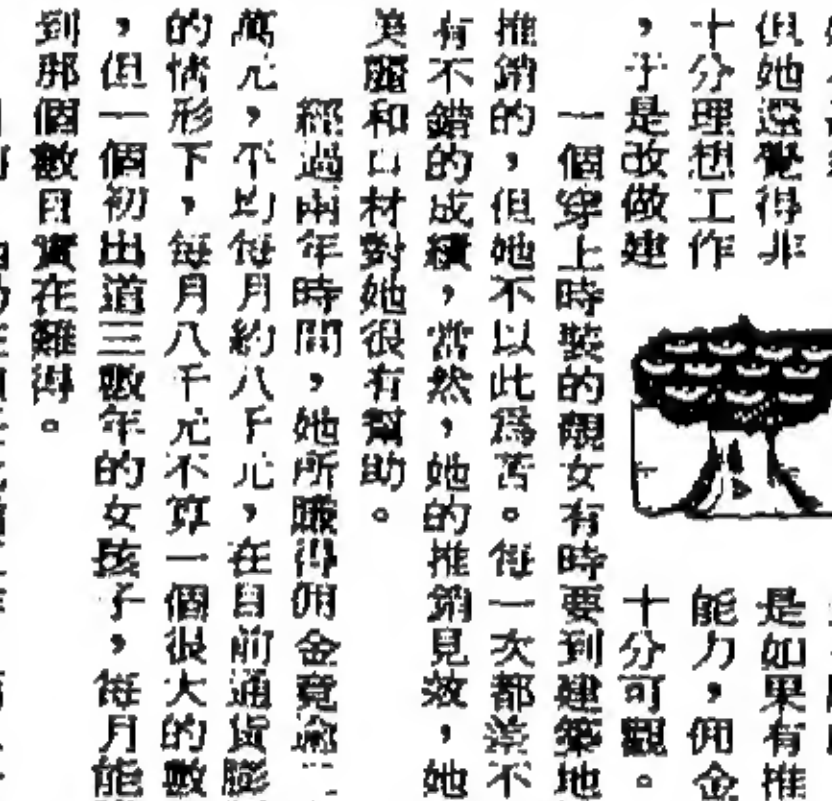 但她還覺得非
十分理想工作
，于是改做建
是如果有推
能力，佣金
十分可觀。
一個穿上時裝的靚女有時要到建築地
推銷的，但她不以此爲苦。每一次都 不
有不錯的成績，當然，她的推銷見效，她
美麗和口材對她很有幫助。
經過兩年時間，她所賺得佣金竟逾二
萬元，平均每月約八千元，在目前通貨膨
的情形下，每月八千元不算一個很大的數
，但一個初出道三數年的女孩子，每月能
到那個數目實在難得。